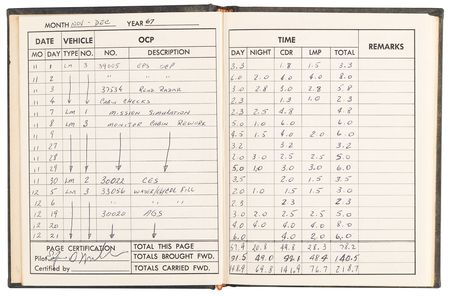 MONTH NOV - DEC YEAR 67
DATE VEHICLE OCP TIME REMARKS
MO DAY TYPE NO. NO. DESCRIPTION DAY NIGHT CDR LMP TOTAL
11 1 LM 3 39005 EPS OCP 3.3 1.8 1.5 3.3
11 2 " " " 6.0 2.0 4.0 4.0 8.0
11 3 37534 RENDZ RADAR 3.0 2.8 3.0 2.8 5.8
11 4 CABIN CHECKS 2.3 1.3 1.0 2.3
11 7 LM 1 MISSION SIMULATION 2.3 2.5 4.8 4.8
11 8 LM 3 MONITOR CABIN REWORK 5.0 1.0 6.0 6.0
11 9 4.5 1.5 4.0 2.0 6.0
11 27 3.2 3.2 3.2
11 28 2.0 3.0 2.5 2.5 5.0
11 29 5.0 1.0 3.0 3.0 6.0
11 30 LM 2 30022 CES 3.5 2.0 1.5 3.5
12 5 LM 3 33056 WATER/GLYCOL FILL 2.0 1.0 1.5 1.5 3.0
12 6 " " 2.3 2.3 2.3
12 19 30020 AGS 3.0 2.0 2.5 2.5 5.0
12 20 4.0 4.0 4.0 4.0 8.0
12 21 6.0 4.0 2.0 6.0
PAGE CERTIFICATION TOTAL THIS PAGE 57.4 20.8 49.8 28.3 78.2
Pilot TOTALS BROUGHT FWD. 91.5 49.0 92.1 48.4 140.5
Certified by TOTALS CARRIED FWD. 148.9 69.8 141.9 76.7 218.7